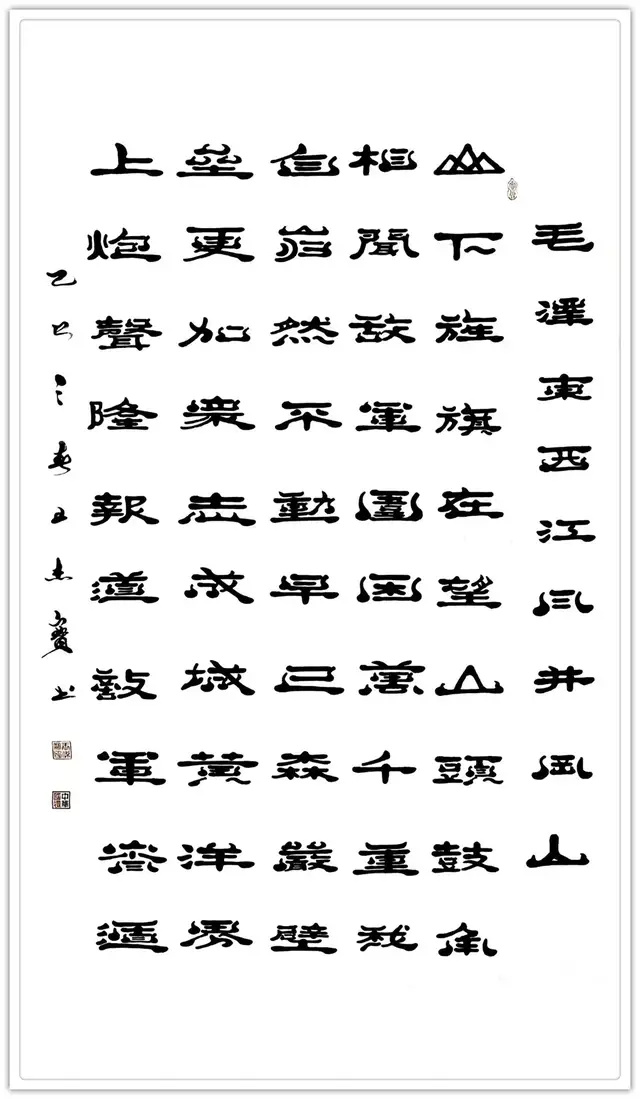 毛澤東西江月井岡山
山下旌旗在望山頭鼓角
相聞敵軍圍困萬千重我
自巋然不動早已森嚴壁
壘更加衆志成城黃洋界
上炮聲隆報道敵軍宵遁
乙巳之春王书